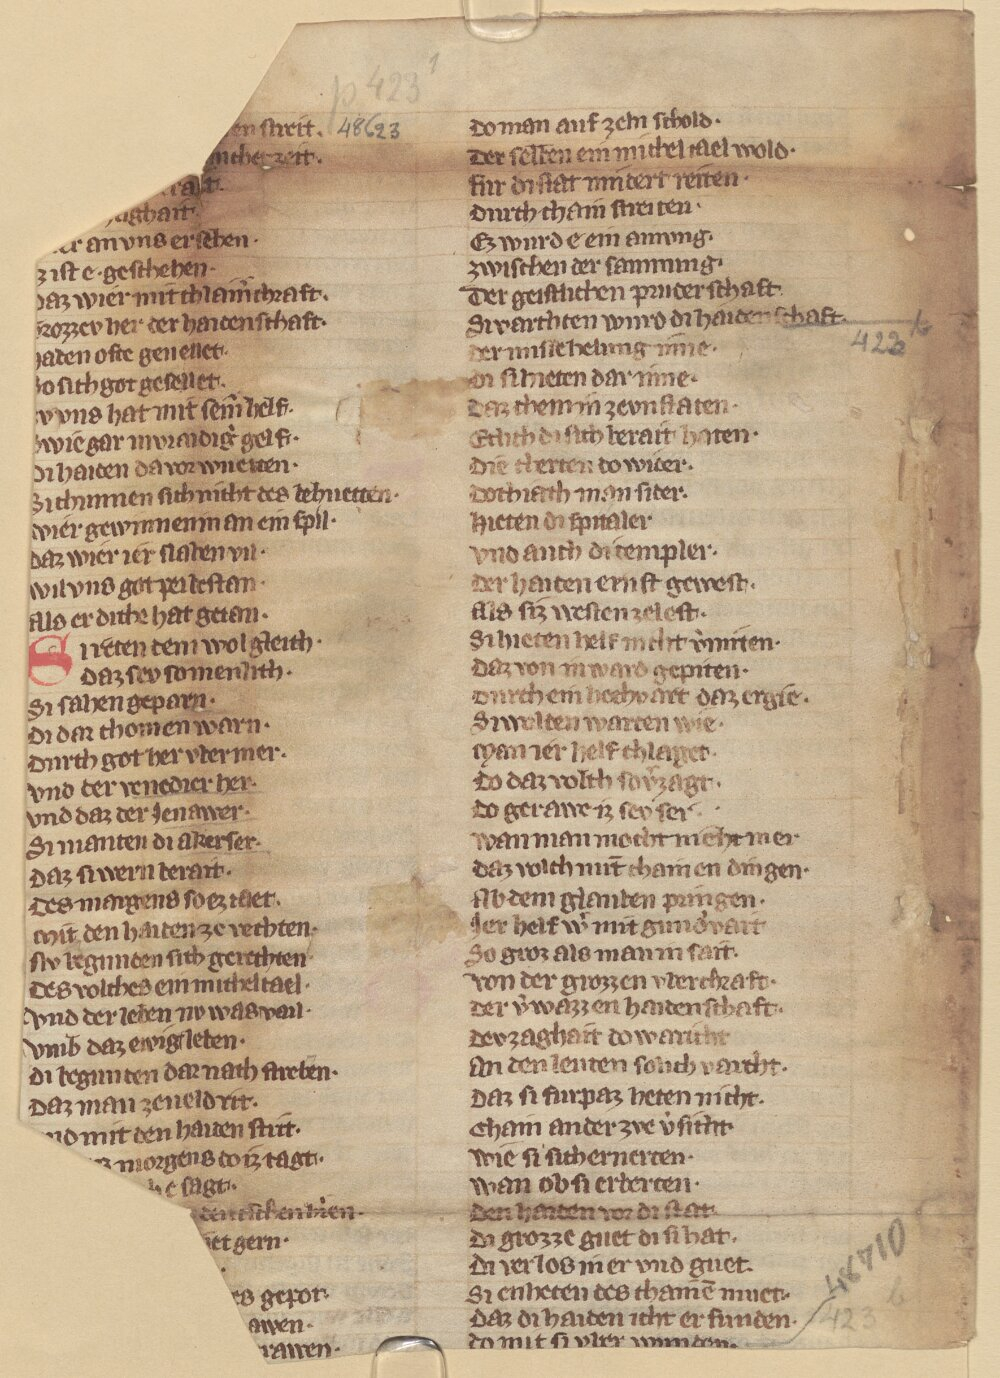 p 423
1
en streit.
48623
micher zeit.
kraft.
zaghait.
er an vns ersehen.
z ist e geschehen.
daz wier mit chlainer chraft.
grozzev her der haidenschaft.
haben ofte geuellet.
so sich got gesellet.
zv vns hat mit seinr helf.
swie gar
di haiden da vor wuetten.
Si chunnen sich nicht des behuetten.
wier gewinnen in an ein spil.
daz wier ier slahen vil.
wil vns got pei bestan.
als er dikhe hat getan.
Si reten dem wol gleich.
daz sev so menlich.
Si sahen geparn.
di dar chomen warn.
durch got her vber mer.
vnd der venedier her.
vnd daz der Jenawer.
Si manten di akerser.
daz si wern berait.
des margens so ez taet.
mit den haiden ze vechten.
siv begunden sich gerechten
des volches ein michel tael.
vnd der leben nv was vail.
vmb daz ewig leben.
di begunten dar nach streben.
daz man ze veld rit.
vnd mit den haiden strit.
morgens do iz tagt.
sagt.
deutschen hern.
gern.
es gepot.
awen.
rawen.
do man auf zeln schold.
der selben ein michel tael wold.
fur di stat nindert reiten.
durch chain streiten.
Ez wurd e ein anvng.
zwischen der samnung.
Der geistlichen pruderschaft.
Si warchten wurd di haidenschaft.
423 b
der missehelung inne.
di si hieten dar inne.
daz chem in ze vnstaten.
Etlich di sich berait haten.
die cherten do wider.
doch iach man sider.
hieten di spitaler
vnd auch di templer.
der haiden ernst gewest.
als siz westen ze lest.
Si hieten helf nicht vermiten.
daz von in ward gepiten.
durch ein hochvart daz ergie.
Si wolten warten wie.
man ier helf chlaget.
do daz volch so verzagt.
do gerawe iz sev ser.
wan man mocht nicht mer
daz volch mit chainen dingen.
Ab dem glauben pringen.
Jer helf wer mit
So groz als man in sait.
von der grozzen vberchraft.
der verwazzen haidenschaft.
dev zaghait do
an den leuten solich varcht.
daz si furpaz heten nicht.
Chain ander zve versicht.
wie si sich ernerten.
wan ob si erberten.
den haiden vor di stat.
di grozze guet di si hat.
di verlos in er vnd guet.
Si enheten des chainen muet.
daz di haiden icht erfunden.
do mit si vber wunden.
48710
423 b